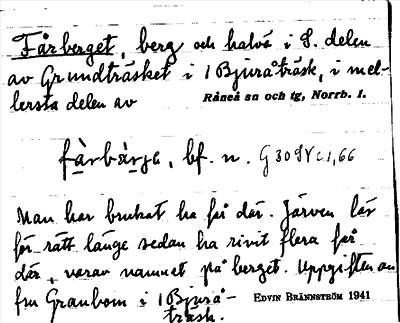 Fårberget, berg och halvö i S. delen
av Grundträsket i 1 Bjuråträsk, i mel-
lersta delen av Råneå sn och tg, Norrb. l.
fàrbàrgə, bf. n. G 30
Man har brukat ha får där. Järven lär
för rätt länge sedan ha rivit flera får
där, varav namnet på berget. Uppgiften av
frn Granbom i 1 Bjurå-
träsk. EDVIN BRÄNNSTRÖM 1941